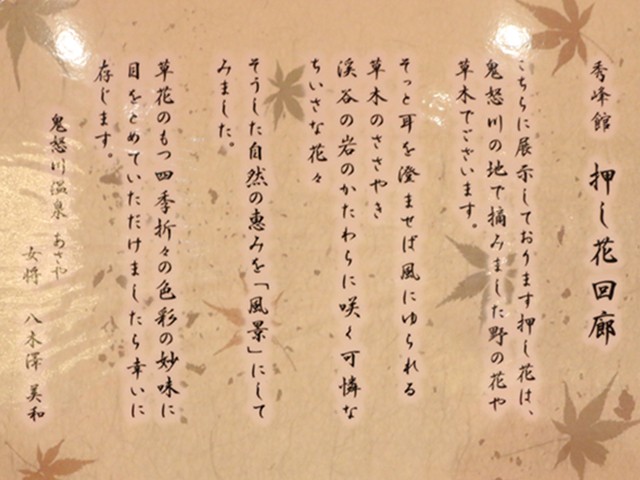 秀峰館 押し花回廊
こちらに展示しております押し花は、
鬼怒川の地で摘みました野の花や
草木でございます。
そっと耳を澄ませば風にゆられる
草木のささやき
渓谷の岩のかたわらに咲く可憐な
ちいさな花々
そうした自然の恵みを「風景」にして
みました。
草花のもつ四季折々の色彩の妙味に
目をとめていただけましたら幸いに
存じます。
鬼怒川温泉 あさや
女将 八木澤 美和